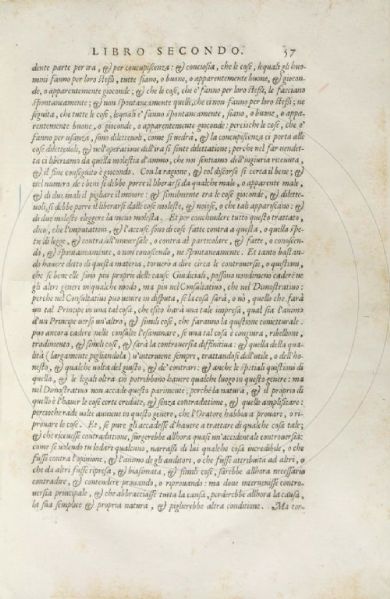 LIBRO SECONDO. 57
dente parte per ira, & per concupiscenza: & conciosia, che le cose, lequali gli huo
mini fanno per loro stessi, tutte siano, o buone, o apparentemente buone, & giocon-
de, o apparentemente gioconde; & che le cose, che s'fanno per loro stessi, le facciano
spontaneamente; & non spontaneamente quelli, che ci non fanno per loro stessi; ne
seguita, che tutte le cose, lequali e' fanno spontaneamente, siano, o buone, o appa-
rentemente buone, o gioconde, o apparentemente gioconde: percioche le cose, che e'
fanno per usanza, sono dilettevoli, come si uedrà, & la concupiscenza ci porta alle
cose dilettevoli, & nell'operatione dell'ira si sente dilettatione; perche nel far uendet-
ta ci liberiamo da quella molestia d'animo, che noi sentiamo dell'ingiuria riceuuta,
& il fine conseguito è giocondo. Con la ragione, & col discorso si cerca il bene; &
nel numero de' beni si debbe porre il liberarsi da qualche male, o apparente male,
& di due mali il pigliare il minore: & similmente tra le cose gioconde, & diletto-
uoli, si debbe porre il liberarsi dalle cose moleste, & noiose, o che tali apparischano; &
di due moleste eleggere la meno molesta. Et per conchiudere tutto questo trattato,
dico, che l'imputationi, & l'accuse sono di cose fatte contra a questa, o quella spe-
tie di legge, & contra all'uniuersale, o contra al particolare, & fatte, o conoscen-
do, & spontaneamente, o non conoscendo, ne spontaneamente. Et tanto bastan-
do hauere dato di questa materia, tornerò a dire circa le controuersie, o questioni,
che se bene elle sono piu proprie delle cause Giudiciali, possono nondimeno cadere ne
gli altri genere in qualche modo, ma piu nel Consultatiuo, che nel Demostratiuo:
perche nel Consultatiuo puo uenire in disputa, se la cosa sarà, o nò, quello che farà
un tal Principe in una tal cosa, che esito harà una tale impresa, qual sia l'animo
d'un Principe uerso un'altro, & simili cose, che faranno la questione conietturale:
puo ancora cadere nelle consulte l'esaminare, se una tal cosa è congiura, ribellione,
tradimento, & simili cose, & sarà la controuersia diffinitiua: & quella della qua-
lità (largamente pigliandola) u'interuiene sempre, trattandosi dell'utile, o dell'ho-
nesto, & qualche uolta del giusto, & de' contrari: & anche le spetiali questioni di
quella, & le legali oltra ciò potrebbono hauere qualche luogo in questo genere: ma
nel Demostratiuo non accade questo parimente; perche la natura, & il proprio di
quello è l'hauer le cose certe credute, & senza contradittione, & quelle amplificare:
percioche rade uolte auuiene in questo genere, che l'Oratore habbia a prouare, o ri-
prouare le cose. Et, se pure gli accadesse d'hauere a trattare di qualche cosa tale;
& che riceuesse contradittione, surgerebbe allhora quasi un'accidentale controuersia:
come se uolendo tu lodare qualcuno, narrassi di lui qualche cosa incredibile, o che
fussi contra l'opinione, & l'animo de gli auditori, o che fusse attribuita ad altri, o
che da altri fusse ripresa, & biasimata, & simili cose, sarebbe allhora necessario
contradire, & contendere prouando, o riprouando: ma doue interuenisse contro-
uersia principale, & che abbracciasse tutta la causa, perderebbe allhora la causa,
la sua semplice & propria natura, & piglierebbe altra conditione. Ma tor-